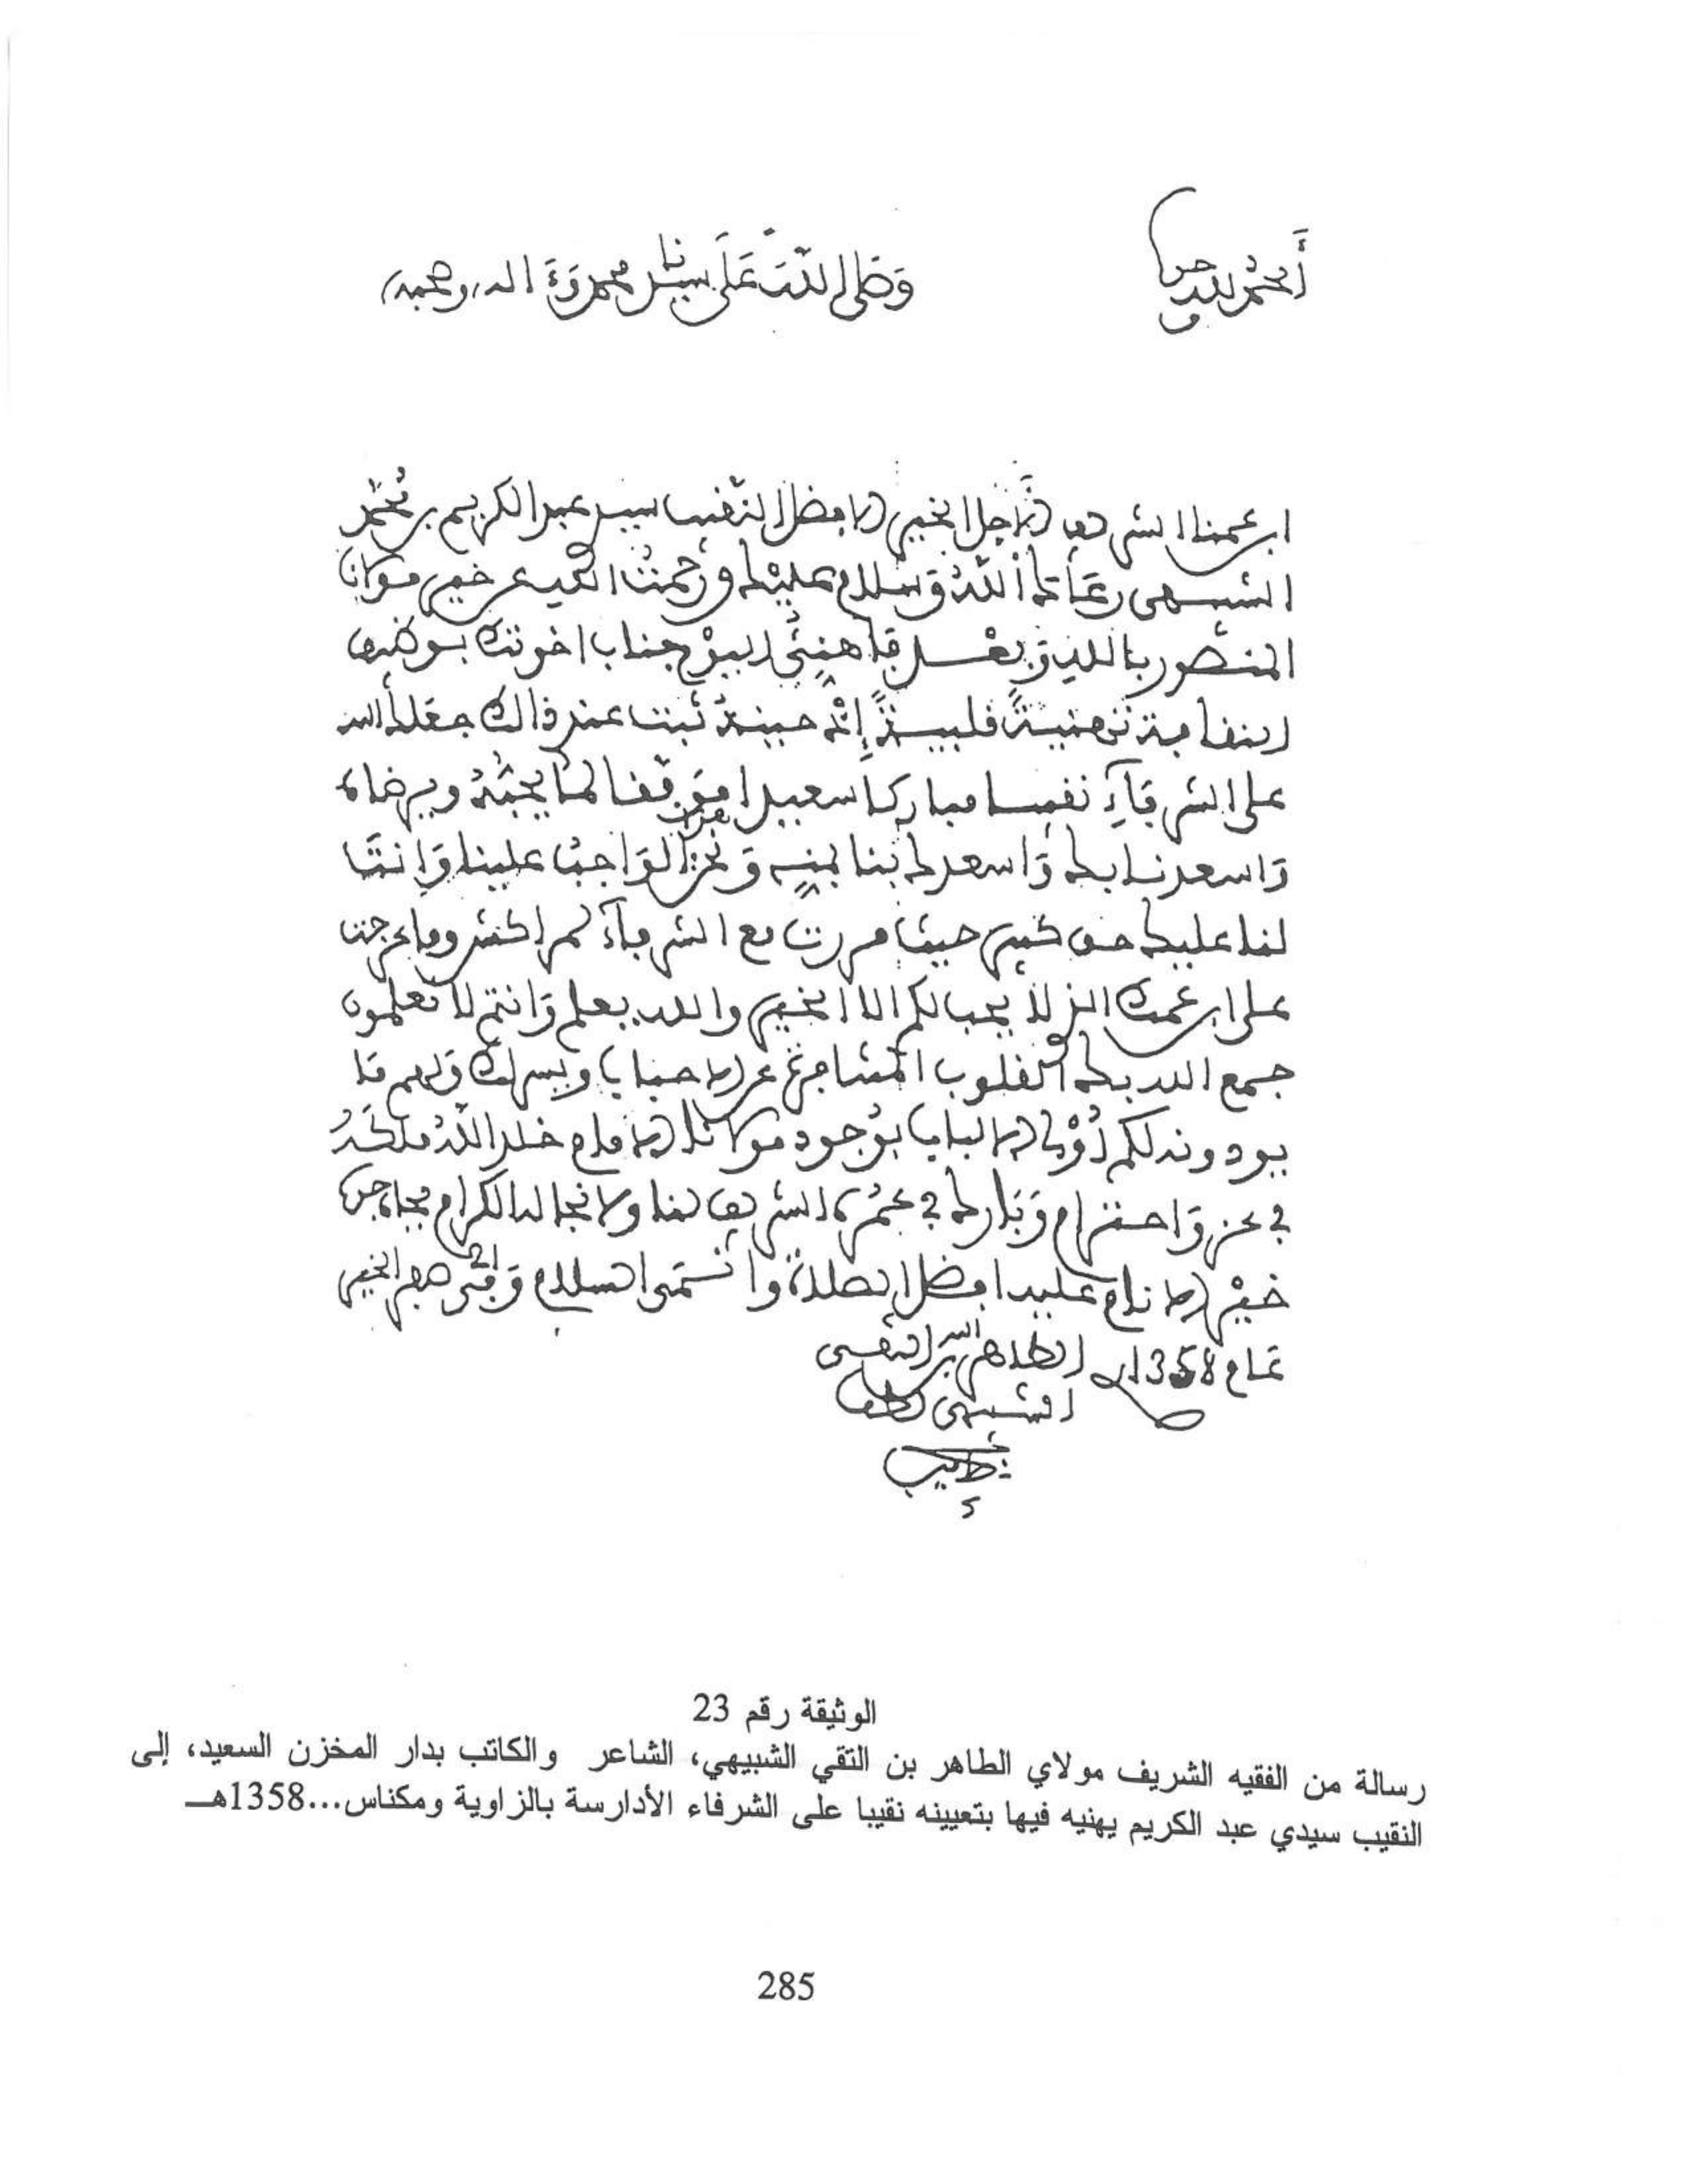 الحمد لله وحده
وصلى الله على سيدنا محمد وعلى اله وصحبه
ابن عمنا الشريف الأجل الخير الأفضل النقيب سيدي عبد الكريم بن محمد
الشبيهي رعاك الله وسلام عليك ورحمت الله عن خير مولانا
المنصور بالله وبعد جناب اخوتك بوظيف
النقابة تهنية قلبية إنك حينئذ ثبت عند ذلك جعلك الله
على الشرفاء نقيبا مباركا سعيدا موفقا لما يحبه ويرضاه
واسعدنا بك واسعدك بنا بمنه وهذا الواجب علينا وانت
لنا عليك حق كبير حيث مررت مع الشرفاء لمراكش وما عرجت
على ابن عمك الذي لا يحب لكم الا الخير والله يعلم وانتم لا تعلمون
جمع الله بك القلوب المتنافرة عن الاحباب
بوجود مولانا الامام خلد الله ملكه
في عز واحترام وبارك في عمره الشريف لنا ولانجاله الكرام بجاه جدك
خير الانام عليه افضل الصلاة والسلام
عام 1358 الطاهر بن التقي
الشبيهي لطف
الوثيقة رقم 23
رسالة من الفقيه الشريف مولاي الطاهر بن التقي الشبيهي، الشاعر والكاتب بدار المخزن السعيد، إلى
النقيب سيدي عبد الكريم يهنيه فيها بتعيينه نقيبا على الشرفاء الأدارسة بالزاوية ومكناس...1358هـ
285